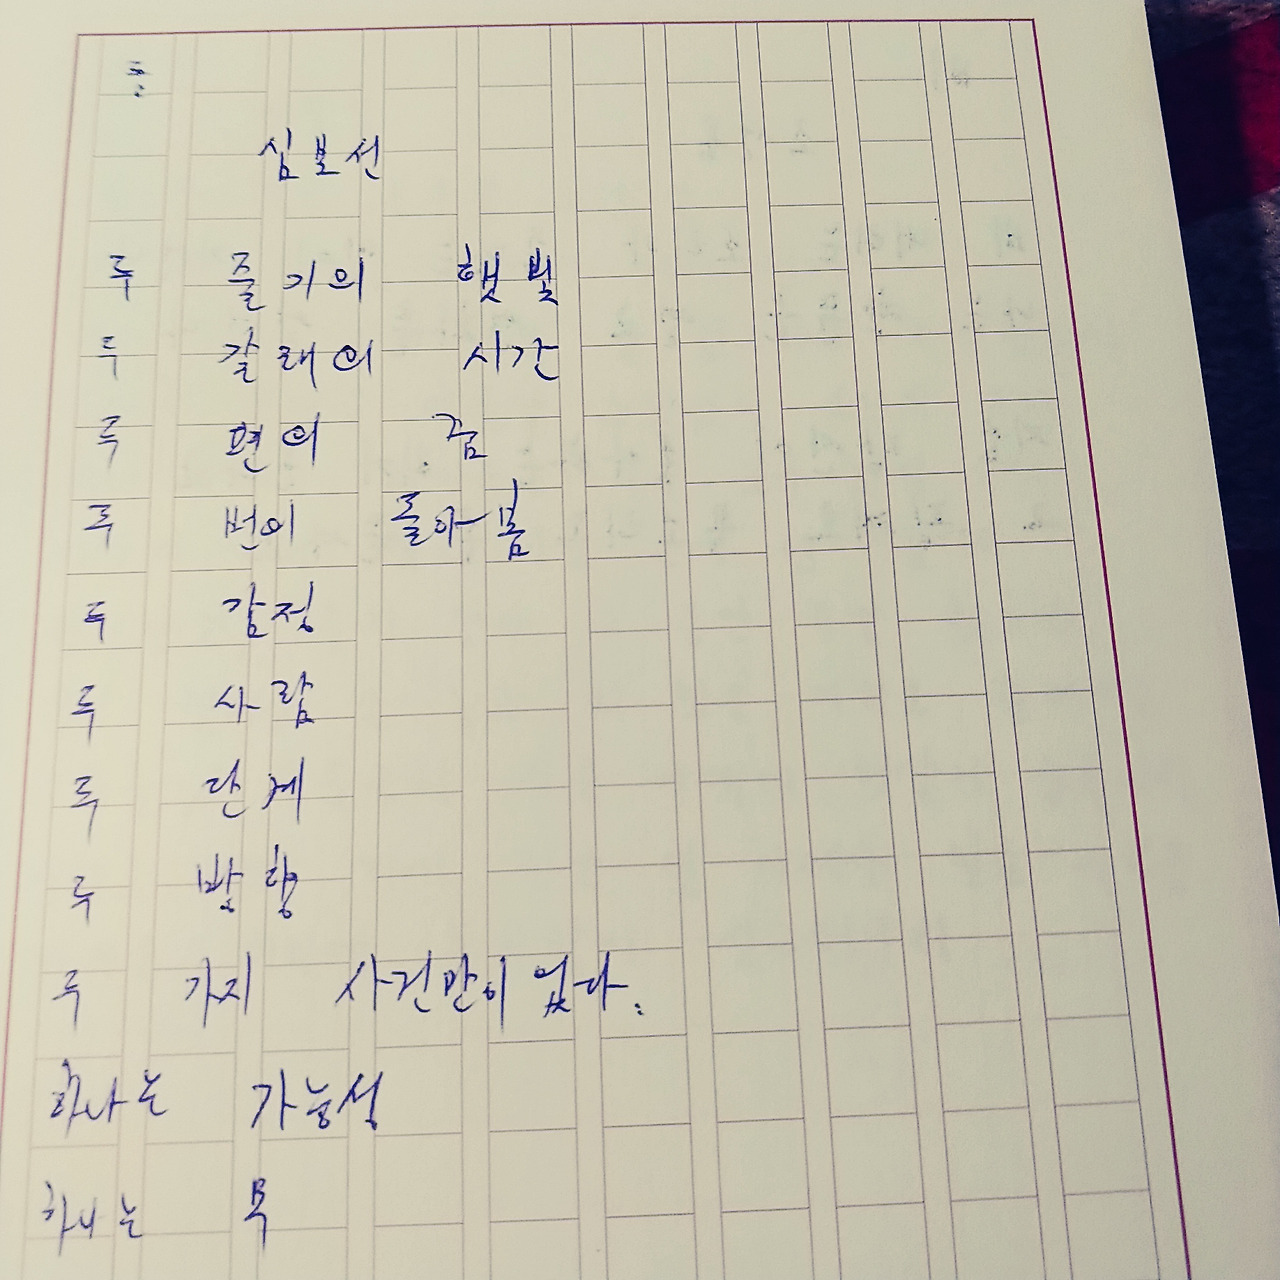 심보선
두 줄기의 햇빛
두 갈래의 시간
두 편의 꿈
두 번의 돌아봄
두 감정
두 사람
두 단계
두 방향
두 가지 사건만이 있다.
하나는 가능성
하나는 무